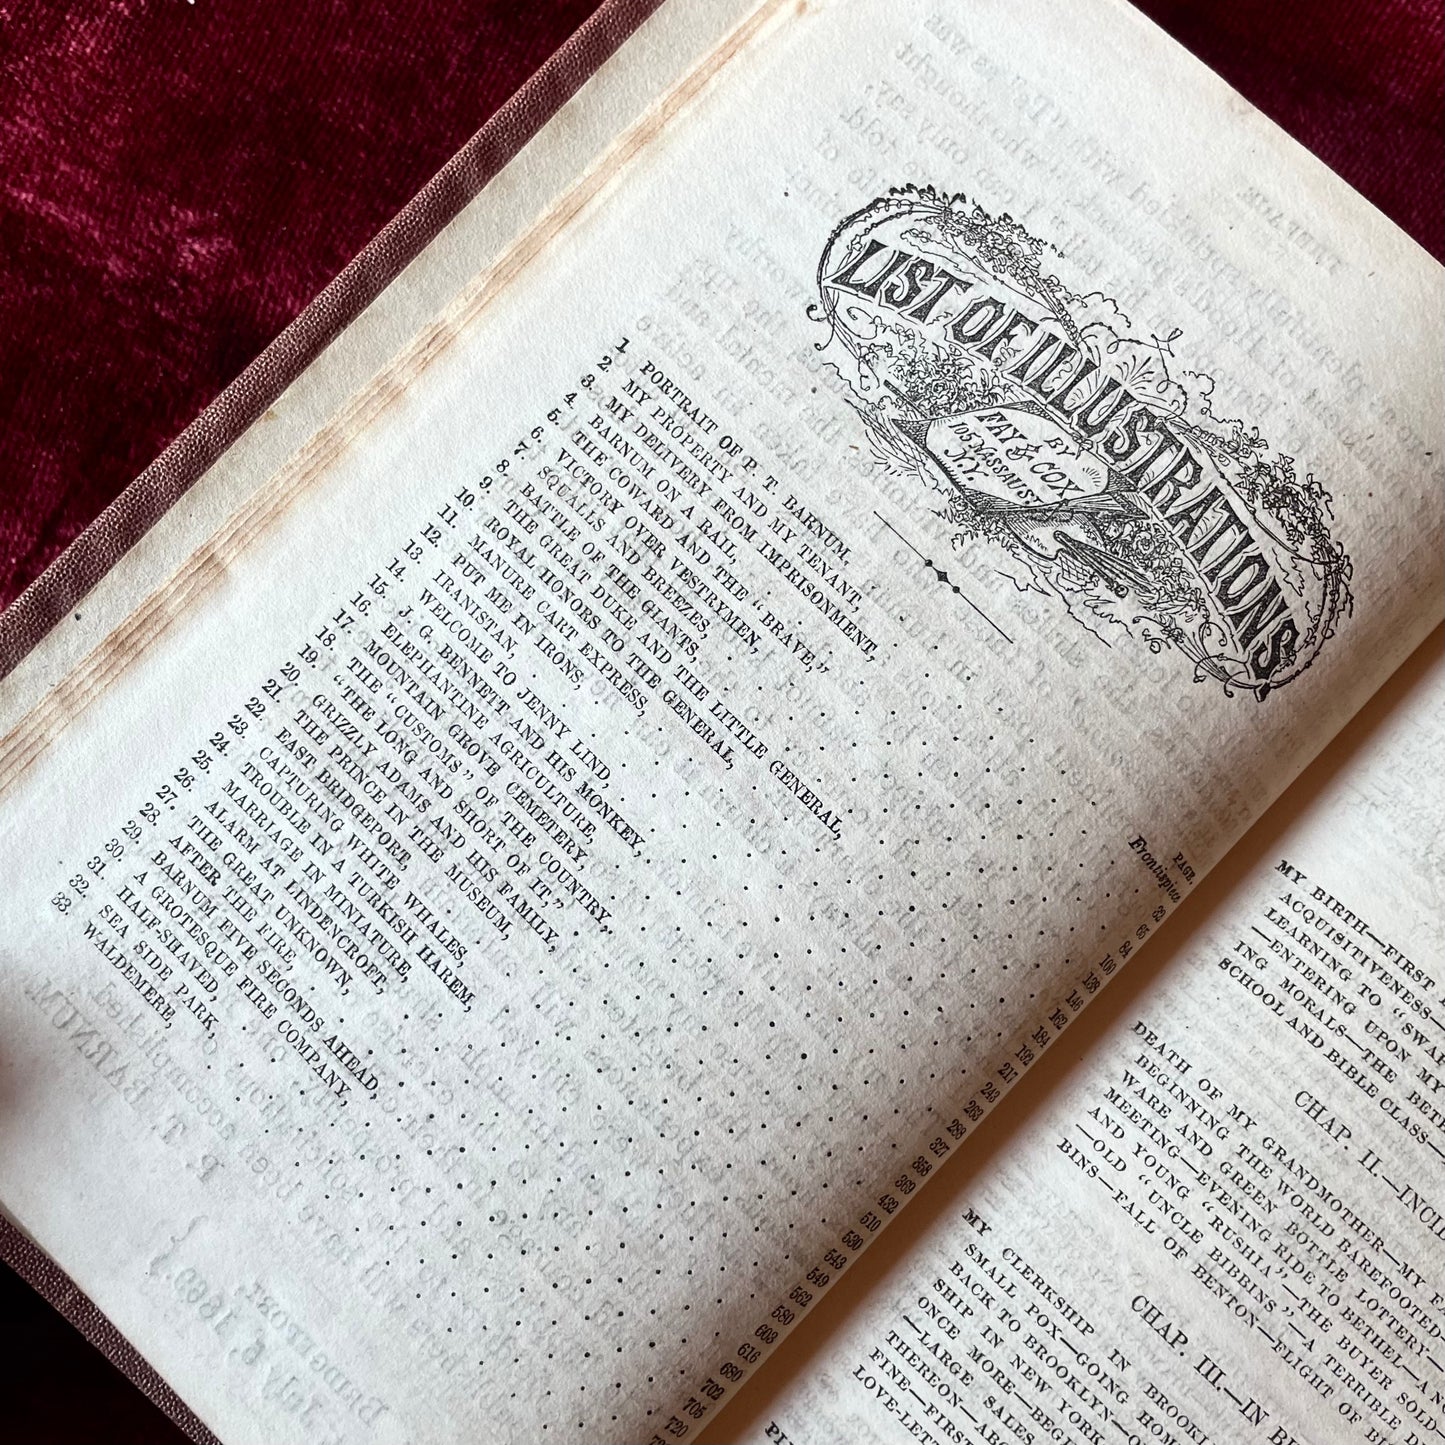 LIST OF ILLUSTRATIONS
BY
FAY & COX
105 NASSAU ST.
N.Y.
PAGE.
1 PORTRAIT OF P. T. BARNUM, Frontispiece
2. MY PROPERTY AND MY TENANT, 32
3. MY DELIVERY FROM IMPRISONMENT, 65
4. BARNUM ON A RAIL, 84
5. THE COWARD AND THE "BRAVE," 100
6. VICTORY OVER VESTRYMEN, 138
7. SQUALLS AND BREEZES, 146
8. BATTLE OF THE GIANTS, 162
9. THE GREAT DUKE AND THE LITTLE GENERAL, 184
10. ROYAL HONORS TO THE GENERAL, 192
11. MANURE CART EXPRESS, 217
12. PUT ME IN IRONS, 243
13 IRANISTAN, 263
14. WELCOME TO JENNY LIND, 288
15. J. G. BENNETT AND HIS MONKEY, 327
16. ELEPHANTINE AGRICULTURE, 358
17. MOUNTAIN GROVE CEMETERY, 369
18. THE "CUSTOMS" OF THE COUNTRY, 432
19. "THE LONG AND SHORT OF IT," 510
20. GRIZZLY ADAMS AND HIS FAMILY, 530
21. THE PRINCE IN THE MUSEUM, 543
22. EAST BRIDGEPORT, 549
23. CAPTURING WHITE WHALES, 562
24. TROUBLE IN A TURKISH HAREM, 580
25. MARRIAGE IN MINIATURE, 603
26. ALARM AT LINDENCROFT, 616
27. THE GREAT UNKNOWN, 680
28. AFTER THE FIRE, 702
29. BARNUM FIVE SECONDS AHEAD, 705
30. A GROTESQUE FIRE COMPANY, 720
31. HALF-SHAVED,
32. SEA SIDE PARK,
33. WALDEMERE,
MY BIRTH—FIRST
ACQUISITIVENESS—
LEARNING TO "SWAP
—ENTERING UPON MY
ING MORALS—THE BETH
SCHOOL AND BIBLE CLASS—
CHAP. II.—INCI
DEATH OF MY GRANDMOTHER—MY FA
BEGINNING THE WORLD BAREFOOTED—
WARE AND GREEN BOTTLE LOTTERY—
MEETING—EVENING RIDE TO BETHEL—
AND YOUNG "RUSHIA"—THE BUYER SOLD
—OLD "UNCLE BIBBINS"—A TERRIBLE
BINS—FALL OF BENTON—FLIGHT OF
CHAP. III.—IN B
MY CLERKSHIP IN BROOKL
SMALL POX—GOING HOM
BACK TO BROOKLYN—
SHIP IN NEW YORK—
ONCE MORE—BEGI
THEREON—ABO
—LARGE SALES
FINE—FIRST
LOVE-LET